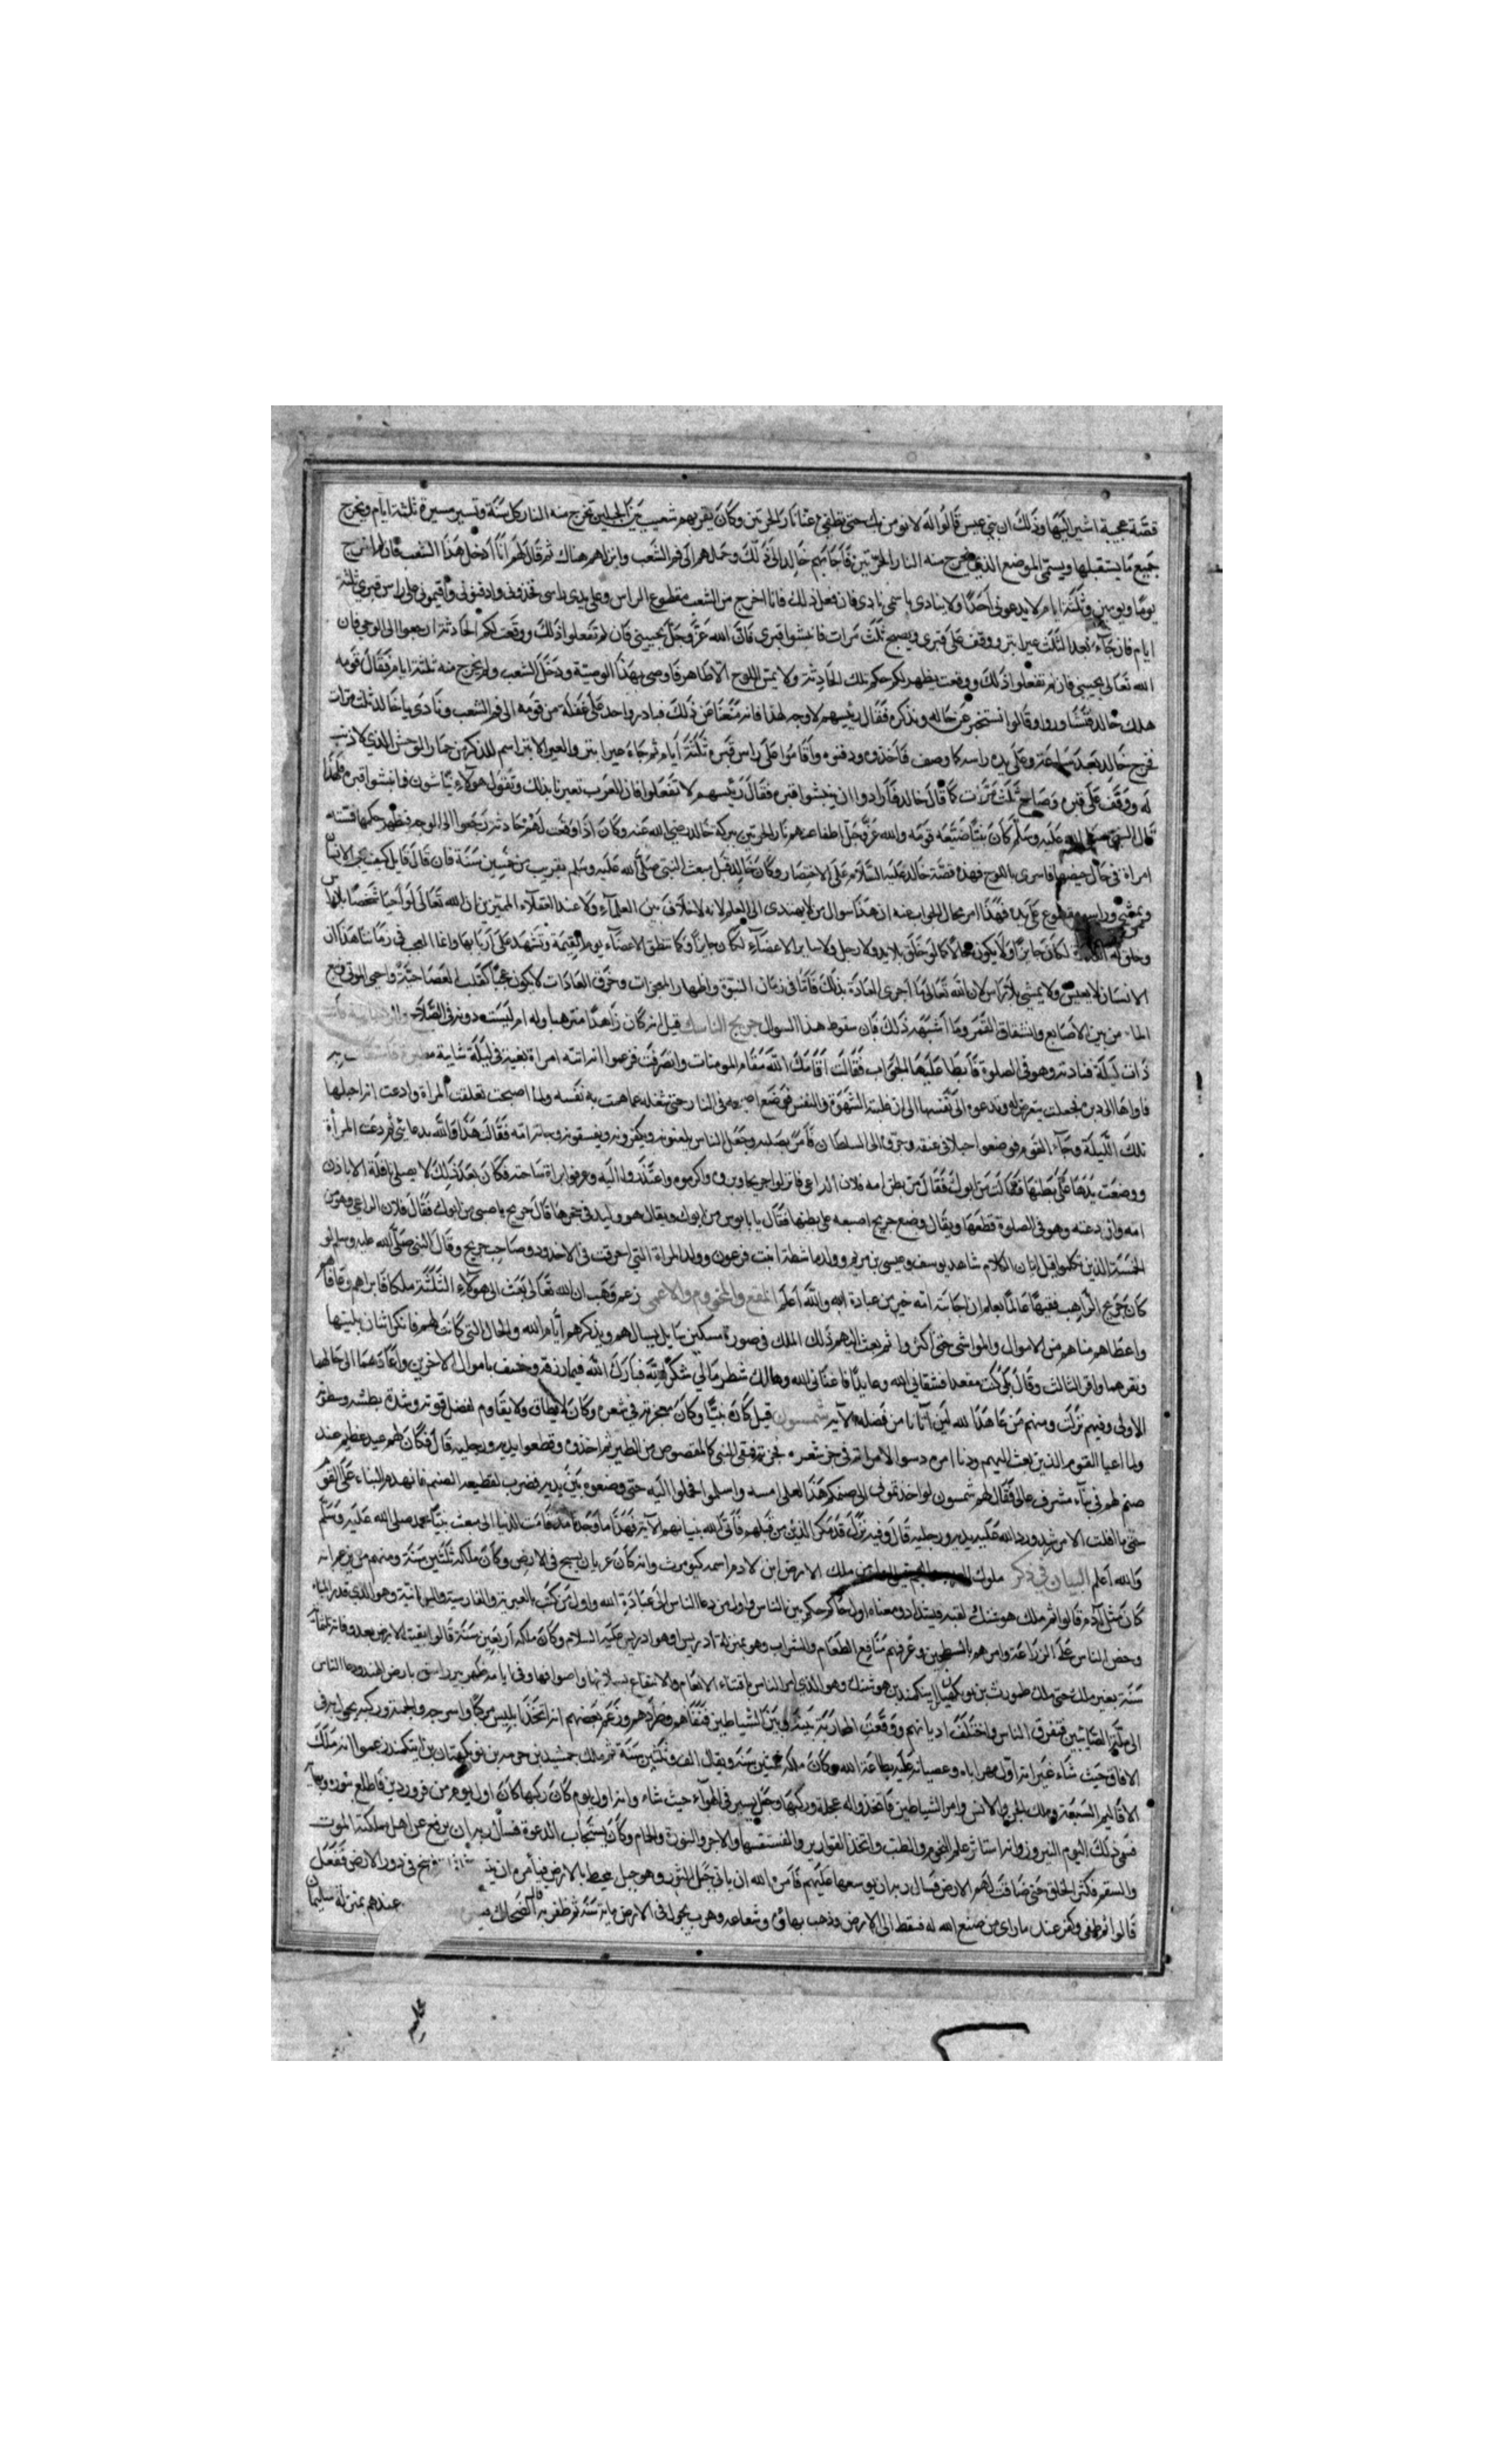 قصّة عجيبة اشير اليها وذلك ان بني عبس قالوا له لا نومن بك حتى تطفئ عنا نار الحرتين وكان بقربهم شعب بين الجبلين تخرج منه النار كل سنة وتسير مسيرة ثلثة ايام وتخرج
جميع ما يستقبلها ويسمى الموضع الذي تخرج منه النار الحرتين فاجابهم خالد الى ذلك وحملهم الى فم الشعب وانزلهم هناك ثم قال لهم انا ادخل هذا الشعب فان لم اخرج
يوما ويومين وثلثة ايام لا يدعوني احد ولا ينادى باسمي نادى فان فعل ذلك فانا اخرج من الشعب مقطوع الراس وعلى يدى راسى تخذونى وادفنونى واقيمونى على راس قبرى ثلثة
ايام فان جاء بعد الثلث عير ابتر ووقف على قبرى ويصيح ثلث مرات فانبشوا قبرى فان الله عز وجل يحيينى فان لم تفعلوا ذلك ووقعت لكم الحادثة ارجعوا الى الوحى فان
الله تعالى يحييى فان لم تفعلوا ذلك ووقعت يظهر لكم حكم تلك الحادثة ولا يمس اللوح الا طاهر فاوصى بهذا الوصية ودخل الشعب ولم يخرج منه ثلثة ايام فقال قومه
هلك خالد فتشاوروا وقالوا نستخبر عن حاله ونذكره فقال رئيسهم لا وجه لهذا فانه منعنا عن ذلك فبادر واحد على غفلة من قومه الى فم الشعب ونادى يا خالد ثلث مرات
فخرج خالد بعد ساعة وعلى يده راسه كما وصف فاخذوه ودفنوه واقاموا على راس قبره ثلثة ايام ثم جاء عير ابتر والعير الابتر اسم للذكر من حمار الوحش الذي لا ذنب
له ووقف على قبره وصاح ثلث مرات كما قال خالد فارادوا ان ينبشوا قبره فقال رئيسهم لا تفعلوا فان العرب تعيرنا بذلك وتقول هولاء نباشون فما نبشوا قبره فلهذا
قال النبي صلى الله عليه وسلم كان نبيا ضيعه قومه والله عز وجل اطفا عنهم نار الحرتين ببركة خالد رضي الله عنه وكان اذا وقعت لهم حادثة رجعوا الى الوحى فظهر حكمها فمسته
امراة في حال حيضها فاسرى باللوح فهذه قصة خالد عليه السلام على الاختصار وكان خالد قبل مبعث النبى صلى الله عليه وسلم بقريب من خمسين سنة فان قال قايل كيف يحيى الانسان
ويمشى وراسه مقطوع على يده فهذا امر محال الجواب عنه ان هذا سوال من لا يهتدى الى العلم لانه لا خلاف بين العلماء ولا عند العقلاء المميزين ان الله تعالى لو احيا شخصا بلا راس
وخلق له لكان جايزا ولا يكون محالا كما لو خلق بلا يد ولا رجل ولا ساير الاعضاء لكان جايزا وكما تنطق الاعضاء يوم القيمة وتشهد على اربابها وانما العجب في زماننا هذا ان
الانسان لا يعيش ولا يمشى بلا راس لان الله تعالى ما اجرى العادة بذلك فاما في زمان النبوة واظهار المعجزات وخرق العادات لا يكون عجبا كقلب العصا حية واحيى الموتى ونبع
الماء من بين الاصابع وانشقاق القمر وما اشبه ذلك فان سقوط هذا السوال جريج الناسك قيل انه كان زاهدا مترهبا وله ام ليست دونه في الصلاح
ذات ليلة فنادته وهو في الصلوة فابطا عليها الجواب فقالت اقامك الله مقام المومنات وانصرفت فزعموا انه اتته امراة بغية في ليلة شاتية
فاواها الى ديره فجعلت تتعرض له وتدعوه الى نفسها الى ان غلبته الشهوة والنفس فوضع اصبعه في النار حتى شغله عما همت به نفسه ولما اصبحت تعلقت المراة وادعت انه احبلها
تلك الليلة وجاء القوم فوضعوا حبلا في عنقه وجروه الى السلطان فامر بصلبه وجعل الناس يلعنونه ويكفرونه ويفسقونه وجاءت امه فقالت هذا والله بدعائي ثم دعت المراة
ووضعت يدها على بطنها فقالت من ابوك فقال من بطن امه فلان الراعى فانزلوا جريحا وبروه واكرموه واعتذروا اليه وعرفوا براة ساحته فكان بعد ذلك لا يصلى نافلة الا باذن
امه وان دعته وهو في الصلوة قطعها ويقال وضع جريج اصبعه على بطنها فقال يا بابوس من ابوك ويقال هو وليد في حجرها قال جريج يا صبى من ابوك فقال فلان الراعى وهو من
الخمسة الذين تكلموا قبل ابان الكلام شاهد يوسف وعيسى بن مريم وولد ماشطة ابنت فرعون وولد المراة التي احرقت في الاخدود وصاحب جريج وقال النبى صلى الله عليه وسلم لو
كان جريج الراهب فقيها عالما لعلم ان اجابته امه خير من عبادة ربه والله اعلم المقعد والمجذوم والاعمى زعم وهب ان الله تعالى بعث الى هولاء الثلثة ملكا فابراهم وعافاهم
واعطاهم مناهم من الاموال والمواشى حتى اكثروا ثم بعث اليهم ذلك الملك في صورة مسكين سايل يسالهم ويذكرهم ايام الله والحال التى كانت لهم فانكر اثنان بليتهما
وفقرهما واقر الثالث وقال كنت مقعدا فشفاني الله وعايلا فاغناني الله وهالك شطر مالي شكرا لله فبارك الله فيما رزقه وخسف باموال الاخرين واعادهما الى حالهما
الاولى وفيهم نزلت ومنهم من عاهد الله لئن آتانا من فضله الآية شمسون قيل كان نبيا وكان معجزته في شعره وكان لا يطاق ولا يقاوم لفضل قوته وشدة بطشه وسطوته
ولما اعيا القوم الذين بعث اليهم ودنا امره دسوا الى امراته في جز شعره فجزته فبقى النبى كالمقصوص من الطير ثم اخذوه وقطعوا يديه ورجليه قال فكان لهم عيد عظيم عند
صنم لهم في بناء مشرف عال فقال لهم شمسون لو اخذتموني الى صنمكم هذا لعلى امسه واسلموا فحملوا اليه حتى وضعوه بين يديه فضرب لقطيعه الصنم فانهدم البناء على القوم
حتى ما افلت الا من شرد ورد الله عليه يديه ورجليه قال وفيه نزل قد مكر الذين من قبلهم فاتى الله بنيانهم الآية فهذا ما وجدنا مذ قامت الدنيا الى مبعث نبينا محمد صلى الله عليه وسلم
والله اعلم البيان في ذكر ملوك العجم قيل اول من ملك الارض ابن لادم اسمه كيومرث وانه كان عريان يسيح في الارض وكان ملكه ثلثين سنة ومنهم من يزعم انه
كان مثل آدم قالوا ثم ملك هوشنك لقبه فيشداد ومعناه اول حاكم حكم بين الناس واول من دعا الناس الى عبادة الله واول من كتب بالعبرية والفارسية واليونانية وهو الذي قدر المياه
وحض الناس على الزراعة وامرهم بالسطحين وعرفهم منافع الطعام والشراب وهو بمنزلة ادريس او هو ادريس عليه السلام وكان ملكه اربعين سنة قالوا بقيت الارض بعد وفاته ثلثمأة
سنة بغير ملك حتى ملك طهورث بن بوكهيان بن ايتكمند بن هوشنك وهو الذي امر الناس باقتناء الانعام والانتفاع بسلانها واصوافها وفى ايامه ظهر بيوراسف بارض الهند ودعا الناس
الى ملة الصابئين فتفرق الناس واختلفت اديانهم ووقعت المحاربة بينه وبين الشياطين فنفاهم وطردهم وزعم بعضهم انه اتخذ ابليس مركبا واسرجه والجمه وركبه يجول به في
الافاق حيث شاء غير انه اول مهر اباه وعصيانه عليه بطاعة الله وكان ملكه ثمنين سنة ويقال الف وثلثين سنة ثم ملك جمشيد بن خرمه بن نوبكهتان بن ايتكمند زعموا انه ملك
الاقاليم السبعة وملك الجن والانس وامر الشياطين فاتخذوا له عجلة وركبها وجعل يسير في الهواء حيث شاء وانه اول يوم كان ركبها كان اول يوم من فروردين فاطلع بنوره وبهائه
فسمى ذلك اليوم النيروز وانه استاثر علم النجوم والطب واتخذ القوارير والفستقسها والاجر والنورة والحمام وكان يستجاب الدعوة فسال ربه ان يرفع عن اهل مملكته الموت
والسقم فكثر الخلق حتى ضاقت لهم الارض فسال ربه ان يوسعها عليهم فامره الله ان ياتى جبل البثور وهو جبل محيط بالارض فيامره ان فرسخ في دور الارض ففعل
قالوا ثم طغى وكفر عند ما راى من صنع الله له فسقط الى الارض وذهب بهاؤه وشعاعه وهرب يجول في الارض ماية سنة ثم ظفر به الضحاك عندهم بمنزلة سليمان